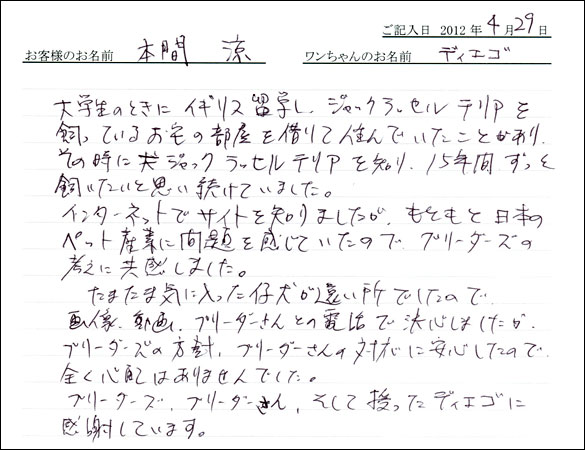 ご記入日 2012 年 4 月 29 日
お客様のお名前 本間 涼 ワンちゃんのお名前 ディエゴ
大学生のときに イギリス 留学し、ジャックラッセル テリア を
飼っているお宅の部屋を借りて住んでいたことがあり、
その時に ジャック ラッセル テリア を知り、15年間 ずっと
飼いたいと思い続けていました。
インターネットでサイトを知りましたが、もともと 日本の
ペット産業に問題を感じていたので、ブリーダーズの
考えに共感しました。
たまたま気に入った仔犬が遠い所でしたので、
画像、動画、ブリーダーさんとの電話で決心しましたが、
ブリーダーズの方針、ブリーダーさんの対応に安心したので、
全く心配はありませんでした。
ブリーダーズ、ブリーダーさん、そして授ったディエゴに
感謝しています。